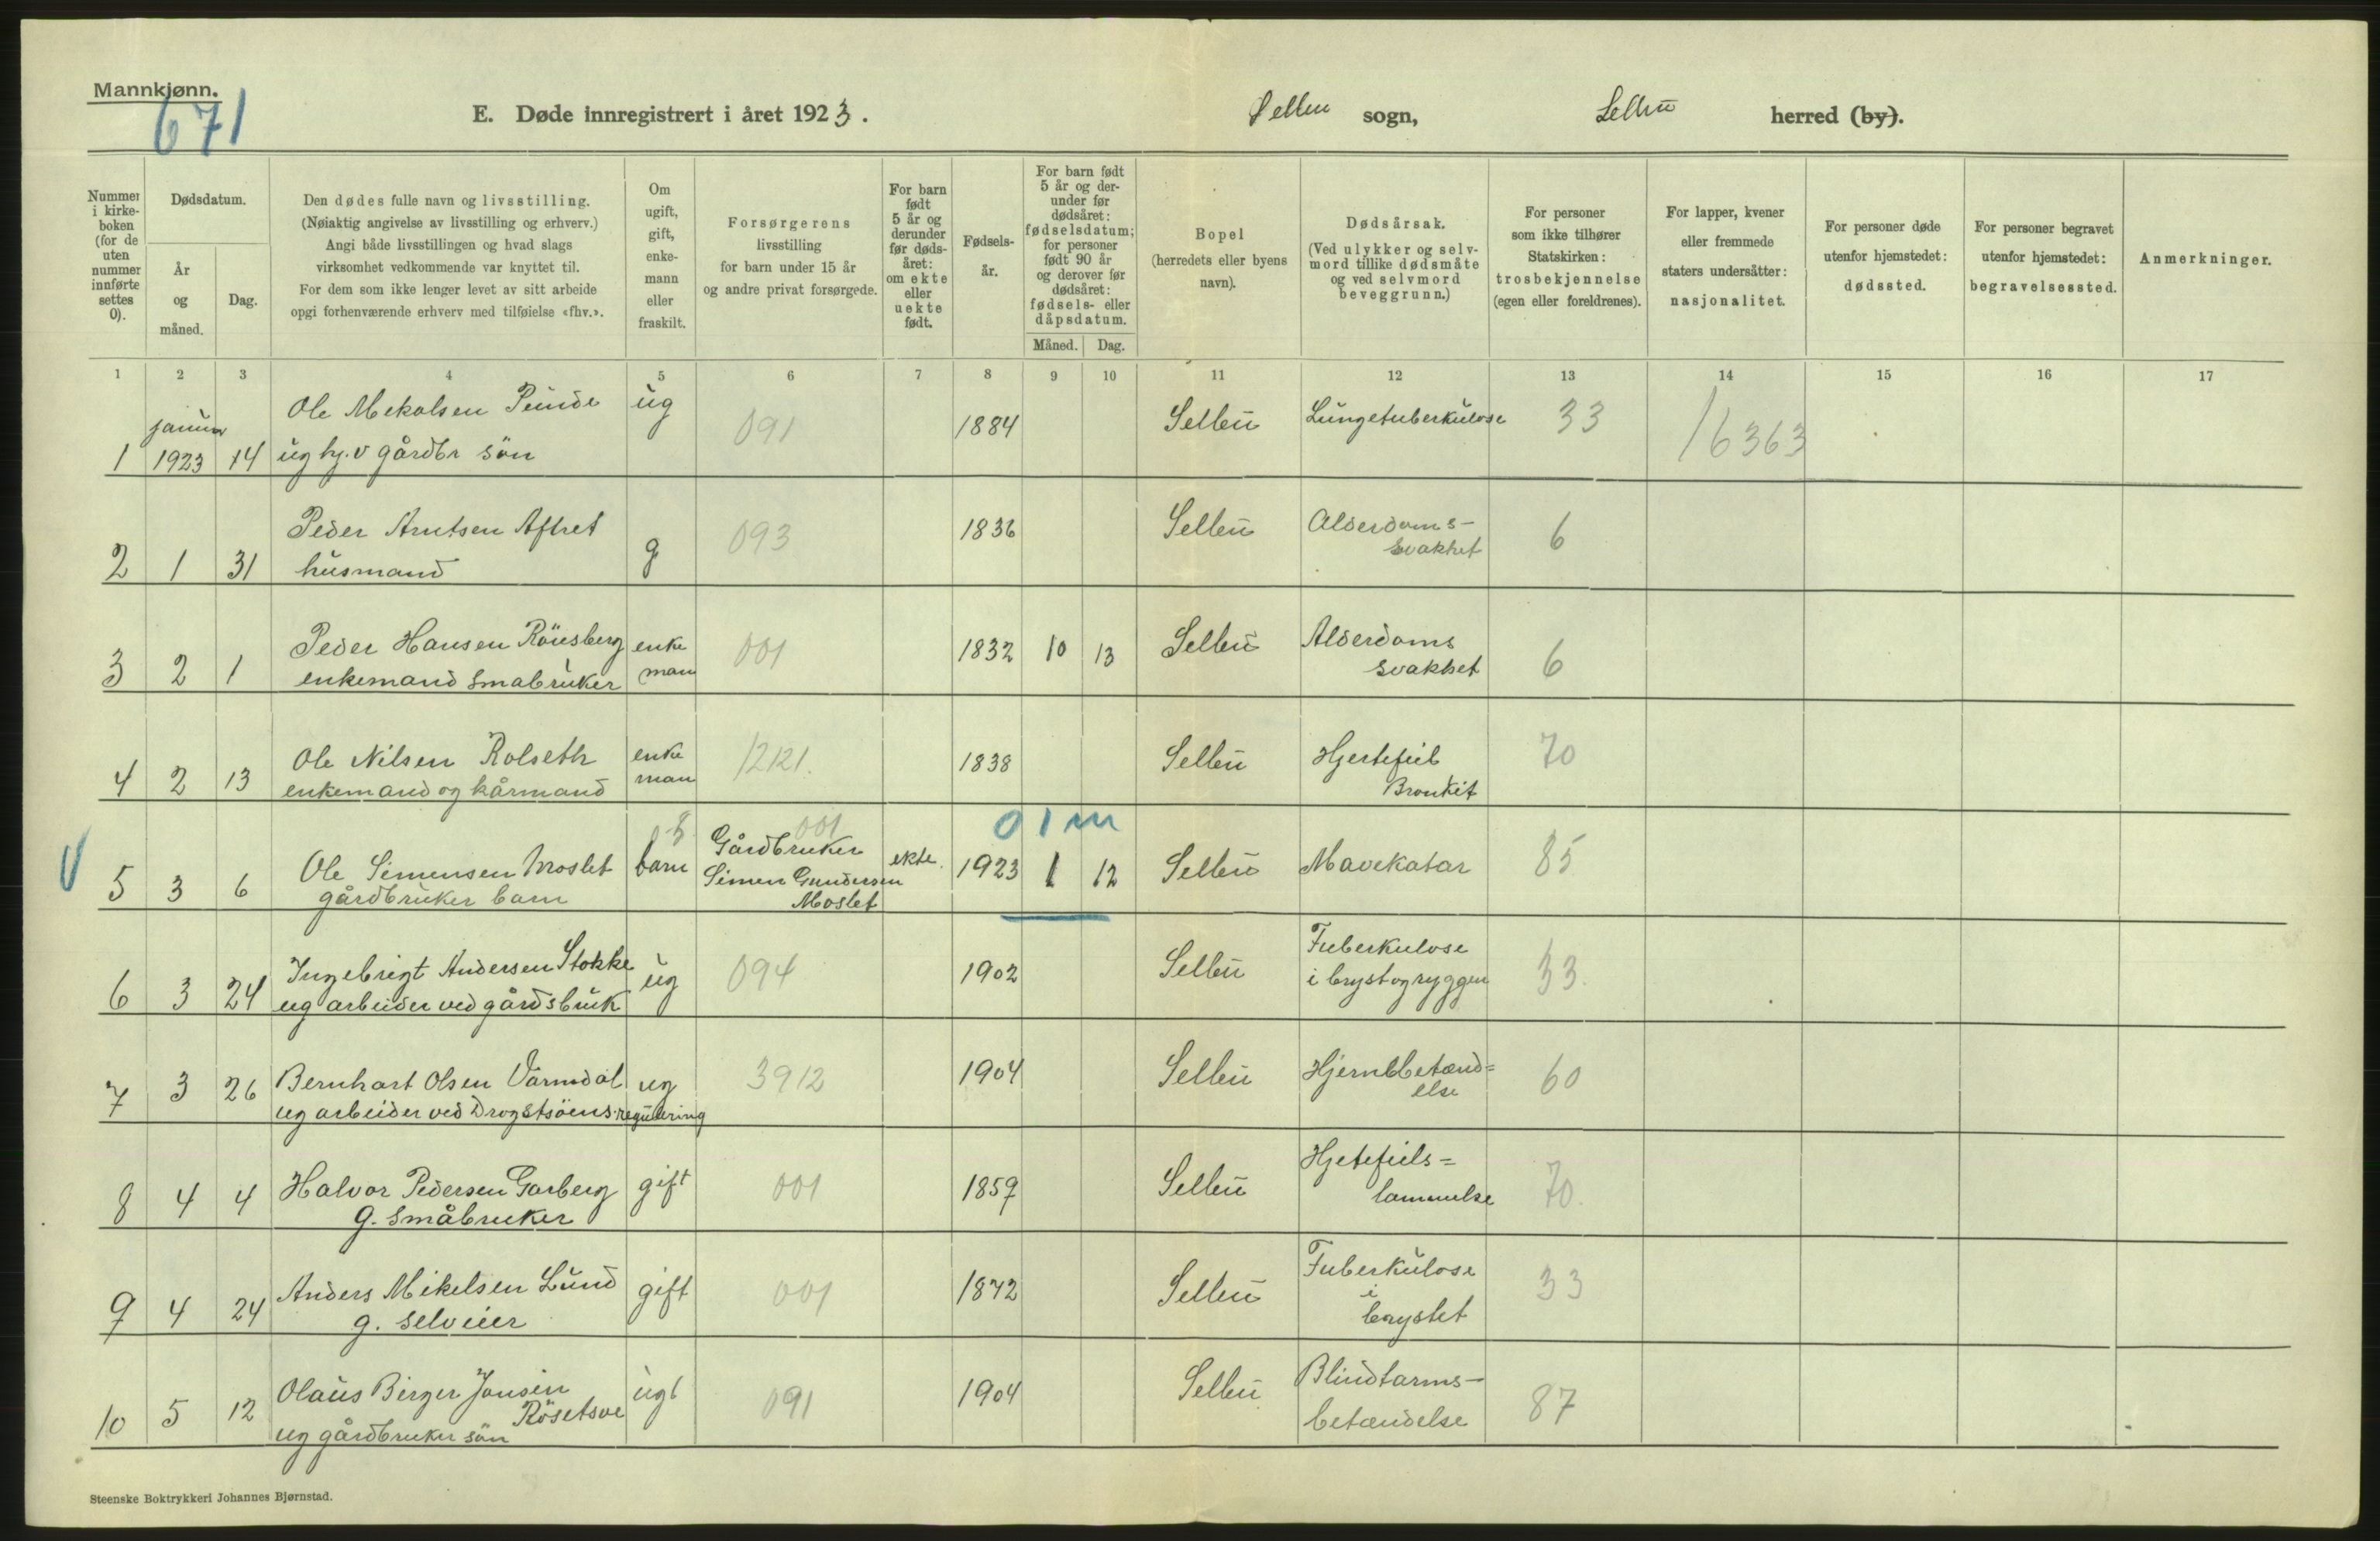 Mannkjønn.
671
E. Døde innregistrert i året 1923.
Selbu sogn,
Selbu herred (by).
Nummer i kirke-boken (for de uten nummer innførte settes 0).
Dødsdatum.
År og måned.
Dag.
Den dødes fulle navn og livsstilling.
(Nøiaktig angivelse av livsstilling og erhverv.)
Angi både livsstillingen og hvad slags
virksomhet vedkommende var knyttet til.
For dem som ikke lenger levet av sitt arbeide
opgi forhenværende erhverv med tilføielse «fhv.».
Om ugift, gift, enke-mann eller fraskilt.
Forsørgerens
livsstilling
for barn under 15 år
og andre privat forsørgede.
For barn født 5 år og derunder før døds-året: om ekte eller uekte født.
Fødsels-år.
For barn født 5 år og der-under før dødsåret: fødselsdatum; for personer født 90 år og derover før dødsåret: fødsels- eller dåpsdatum.
Måned. Dag.
Bopel
(herredets eller byens
navn).
Dødsårsak.
(Ved ulykker og selv-
mord tillike dødsmåte
og ved selvmord
beveggrunn.)
For personer
som ikke tilhører
Statskirken:
trosbekjennelse
(egen eller foreldrenes).
For lapper, kvener
eller fremmede
staters undersåtter:
nasjonalitet.
For personer døde
utenfor hjemstedet:
dødssted.
For personer begravet
utenfor hjemstedet:
begravelsessted.
Anmerkninger.
1 2 3 4 5 6 7 8 9 10 11 12 13 14 15 16 17
januar Ole Mekalsen ug 091 1884 Selbu Lungetuberkulose 33 16363
1 1923 14 ug hj. v gårdbr sön
Peder Arntsen Aftret 093 1836 Selbu Alderdoms-
2 1 31 husmand g svakhet 6
Peder Hansen Rönsberg enke 001 1832 10 13 Selbu Alderdoms
3 2 1 enkemand småbruker man svakhet 6
Ole Nilsen Rolseth enke 12121. 1838 Selbu Hjertefeil 70
4 2 13 enkemand og kårmand man Bronkit
001 01m
V Gårdbruker
5 3 6 Ole Simensen Moslet barn Simen Gundersen ekte. 1923 1 12 Selbu Mavekatar 85
gårdbruker barn Moslet
Ingebrigt Andersen Stokke ug 094 1902 Selbu Tuberkulose
6 3 24 ug arbeider ved gårdsbruk i bryst og ryggen 33.
7 3 26 Bernhart Olsen Värmdal ug 3912 1904 Selbu Hjernebetænd= 60
ug arbeider ved Drogstsöens regulering else
Hjetefeils=
8 4 4 Halvor Pedersen Garberg gift 001 1859 Selbu lammelse 70.
g. småbruker
Anders Mikelsen Lund gift 001 1872 Selbu Tuberkulose 33
9 4 24 g. selveier i
brystet
Olaus Birger Jonsen ugt 091 1904 Selbu Blindtarms-
10 5 12 Rösetsve betændelse 87
ug gårdbruker sön
Steenske Boktrykkeri Johannes Bjørnstad.